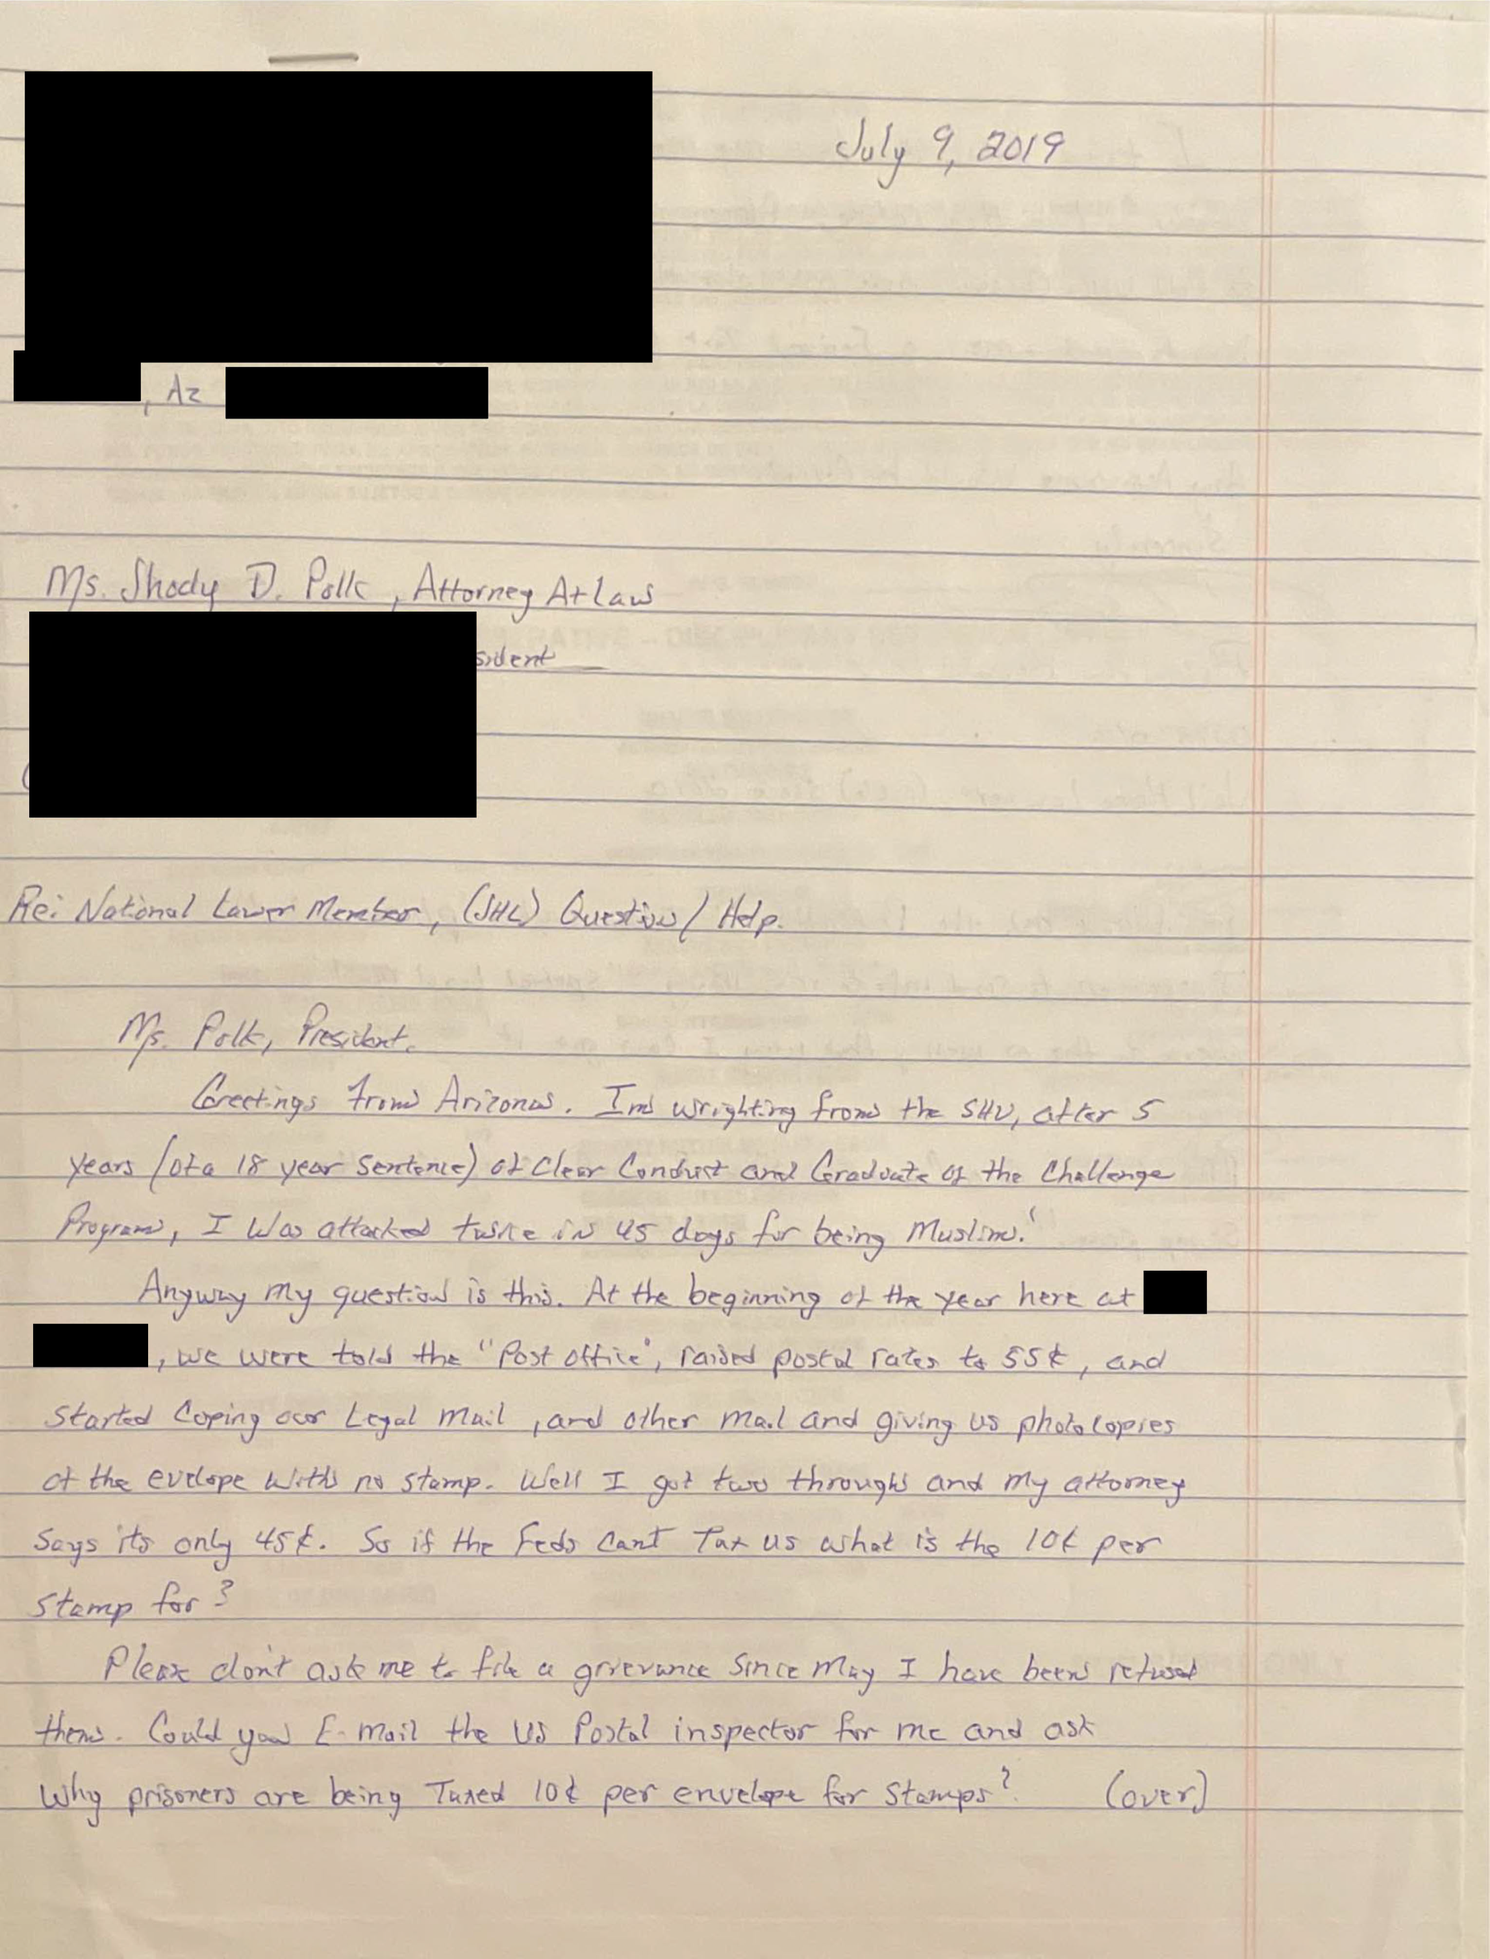 July 9, 2019
, Az
Ms. Shody D. Polk, Attorney At law
sident
Re: National Lawer Member, (JHL) Question/Help.
Ms. Polk, President.
Greetings from Arizona. Im wrighting from the SHU, after 5
years (of a 18 year sentence) of Clear Conduct and Graduate of the Challenge
Program, I Was attacked twice in 45 days for being Muslim!
Anyway my question is this. At the beginning of the year here at
, we were told the "Post office", raised postal rates to 55¢, and
started Coping our Legal Mail, and other mail and giving us photo copies
of the evelope with no stamp. Well I got two through and my attorney
says its only 45¢. So if the Feds Cant Tax us what is the 10¢ per
stamp for?
Please don't ask me to file a grievance since May I have been refused
them. Could you E-mail the US Postal inspector for me and ask
Why prisoners are being Taxed 10¢ per envelope for Stamps? (over)